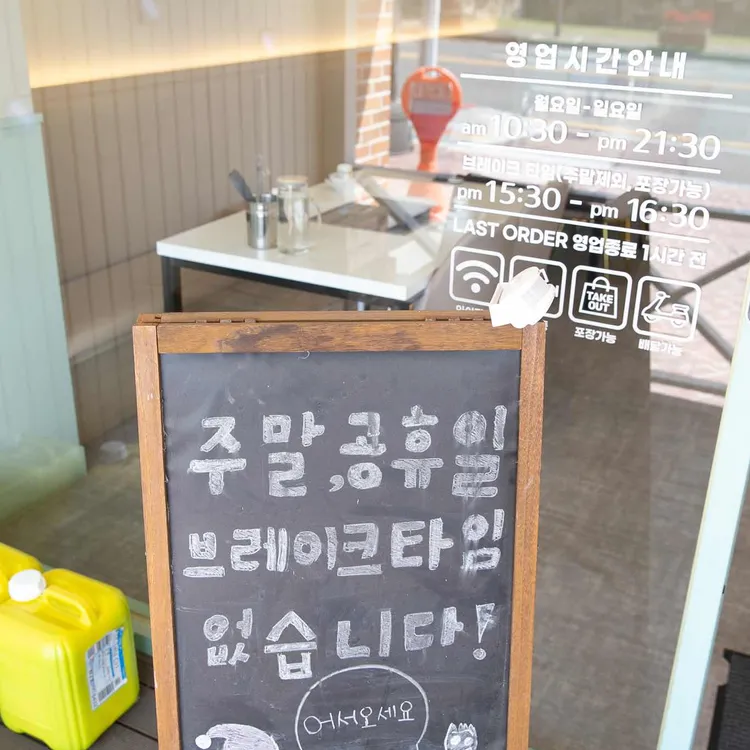 영업시간안내
월요일-일요일
am 10:30 - pm 21:30
브레이크 타임(주말제외, 포장가능)
pm 15:30 - pm 16:30
LAST ORDER 영업종료 1시간 전
TAKE
OUT
포장가능
배달가능
주말,공휴일
브레이크타임
없습니다!
어서오세요